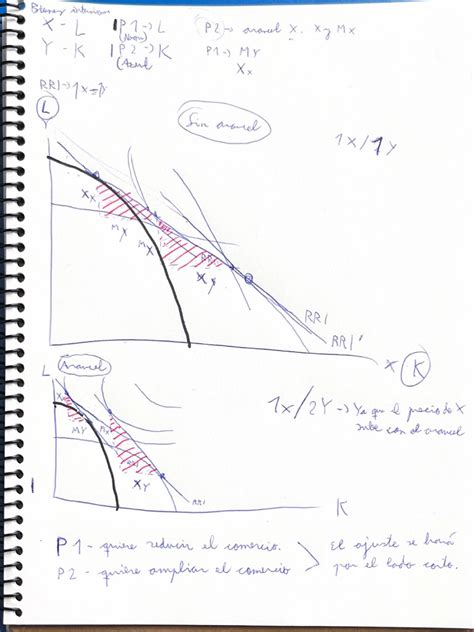 Bienes intensivos
X - L   P1 -> L   P2 -> arancel X. X y Mx
Y - K   P2 -> K   P1 -> MY
(Azul)   Xx
RRI -> 1x = 1y
L
Sin arancel
1x/1y
Xx
Mx
Mx
Xy
RRI
RRI'
X K
L Arancel
1x/2y -> Ya que el precio de X
sube con el arancel
MY
Mx
XY
RRI
K
P1 - quiere reducir el comercio.   El ajuste se hará
P2 - quiere ampliar el comercio   por el lado corto.